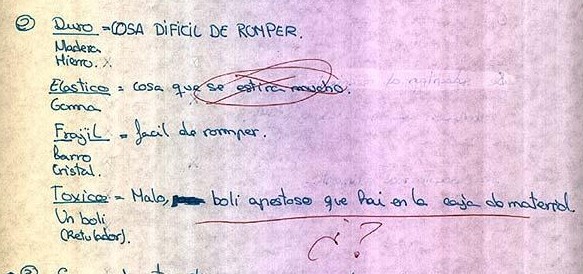 ② Duro = COSA DIFICIL DE ROMPER.
Madera
Hierro. X
Elastico = cosa que se estira mucho.
Goma
Frajil = facil de rromper.
Barro
Cristal.
Toxico = Malo, boli apestoso que hai en la caja do material.
Un boli
(Retulador).
¿?